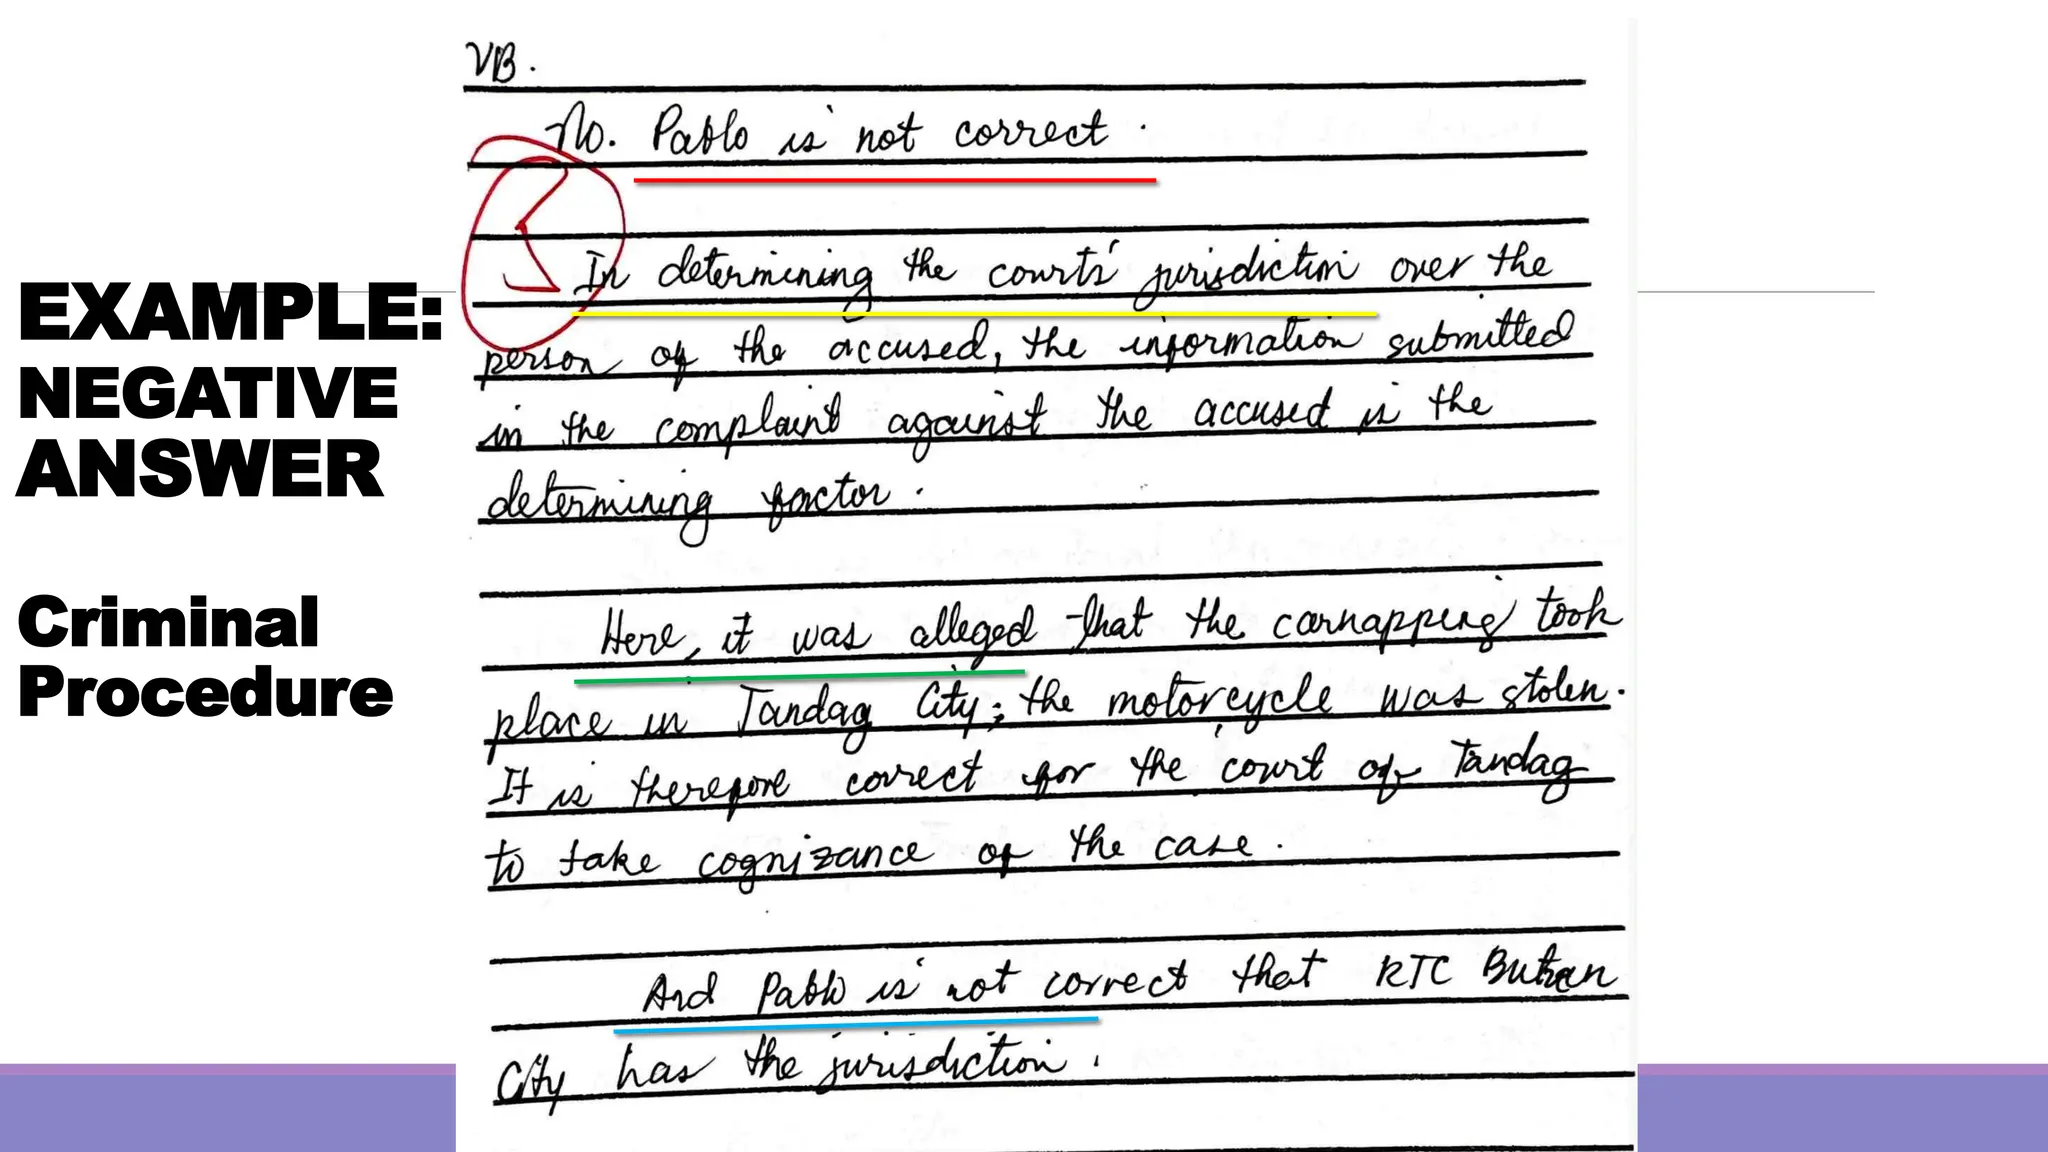 EXAMPLE:
NEGATIVE
ANSWER
Criminal
Procedure
VB.
No. Pablo is not correct.
In determining the courts' jurisdiction over the
person of the accused, the information submitted
in the complaint against the accused is the
determining factor.
Here, it was alleged that the carnapping took
place in Tandag City; the motorcycle was stolen.
It is therefore correct for the court of Tandag
to take cognizance of the case.
And Pablo is not correct that RTC Butuan
City has the jurisdiction.